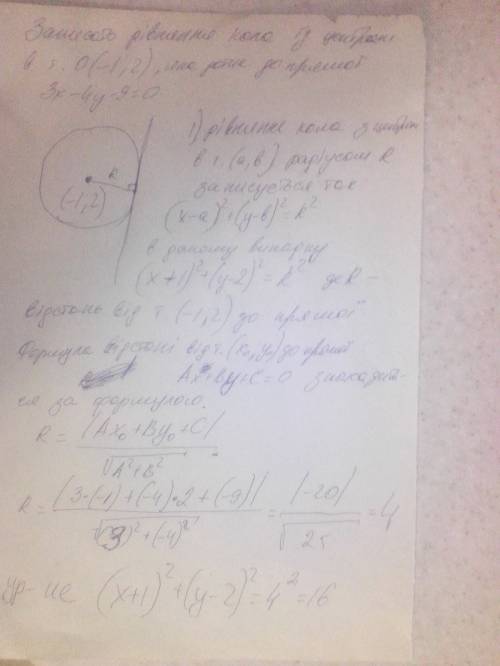 Записать рівняння кола із центром
в т. O(-1,2), яка дотик до прямої
3x-4y-9=0
1) рівняння кола з центром
в т. (a,b) радіусом R
записується так
(x-a)²+(y-b)²=R²
R
(-1,2)
в даному випадку
(x+1)²+(y-2)²=R² де R -
відстань від т. (-1,2) до прямої
Формула відстані від т. (x₀,y₀) до прямої
Ax+By+C=0 знаходит-
ся за формулою.
R = |Ax₀+By₀+C| / √A²+B² .
R = |3·(-1)+(-4)·2+(-9)| / √(3)²+(-4)² = |-20| / √25 = 4
ур-ие (x+1)²+(y-2)²=4²=16